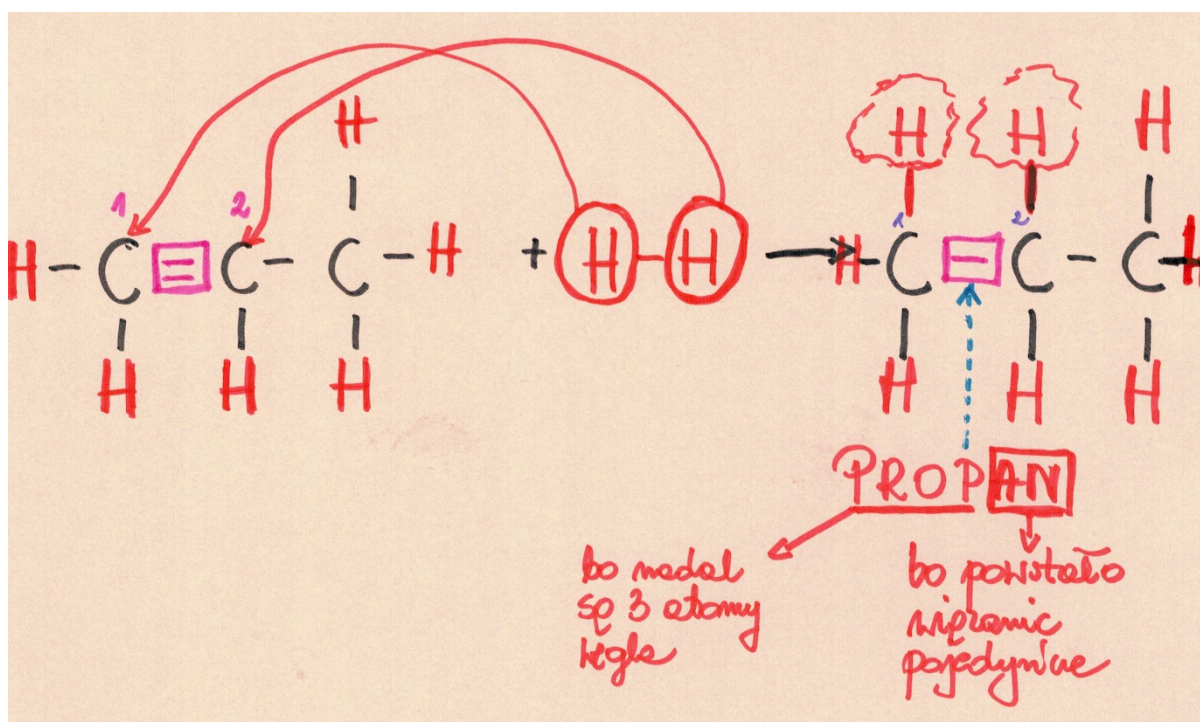 H
1 2 H H H
1 2
H – C = C – C – H + H – H → H – C – C – C – H
H H H H H H
PROPAN
bo nadal
są 3 atomy
węgla
bo powstało
wiązanie
pojedyncze